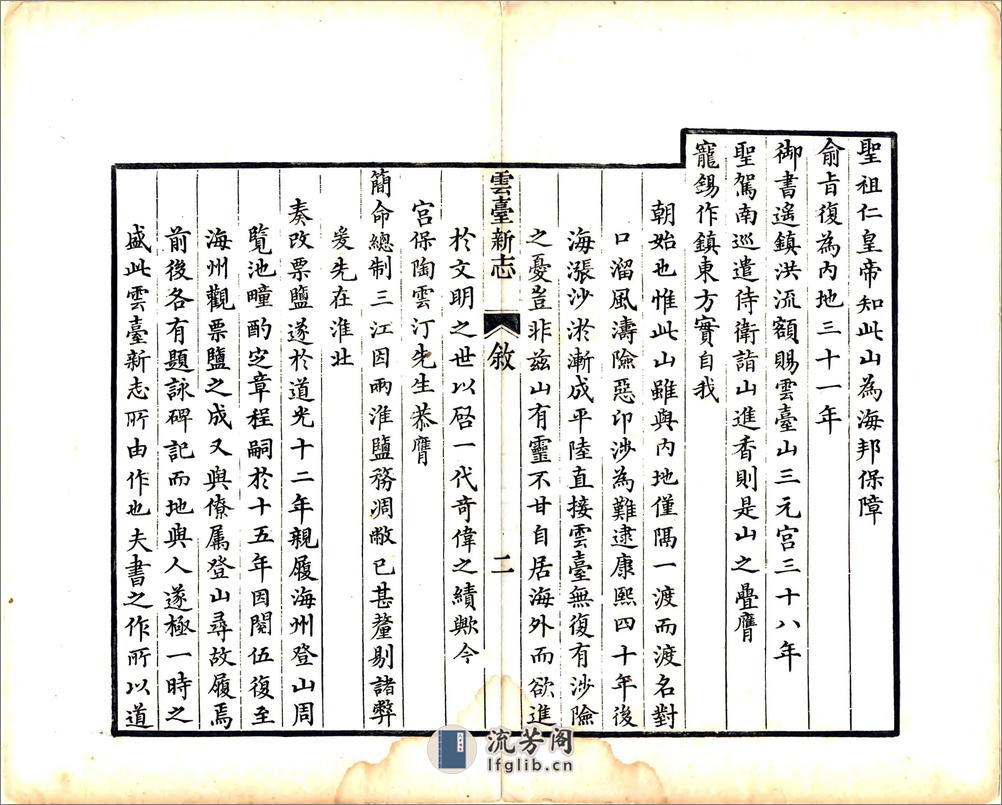 聖祖仁皇帝知此山為海邦保障
俞旨復為內地三十一年
御書遙鎮洪流額賜雲臺山三元宮三十八年
聖駕南巡遣侍衛詣山進香則是山之疊膺
寵錫作鎮東方實自我
朝始也惟此山雖與內地僅隔一渡而渡名對
口溜風濤險惡卬涉為難逮康熙四十年後
海漲沙淤漸成平陸直接雲臺無復有涉險
之憂豈非茲山有靈不甘自居海外而欲進
雲臺新志
敘
二
於文明之世以啓一代奇偉之績歟今
宮保陶雲汀先生恭膺
簡命總制三江因兩淮鹽務凋敝已甚釐剔諸弊
爰先在淮北
奏改票鹽遂於道光十二年親履海州登山周
覽池疃酌定章程嗣於十五年因閱伍復至
海州觀票鹽之成又與僚屬登山尋故履焉
前後各有題詠碑記而地與人遂極一時之
盛此雲臺新志所由作也夫書之作所以道
流芳阁
lfglib.cn